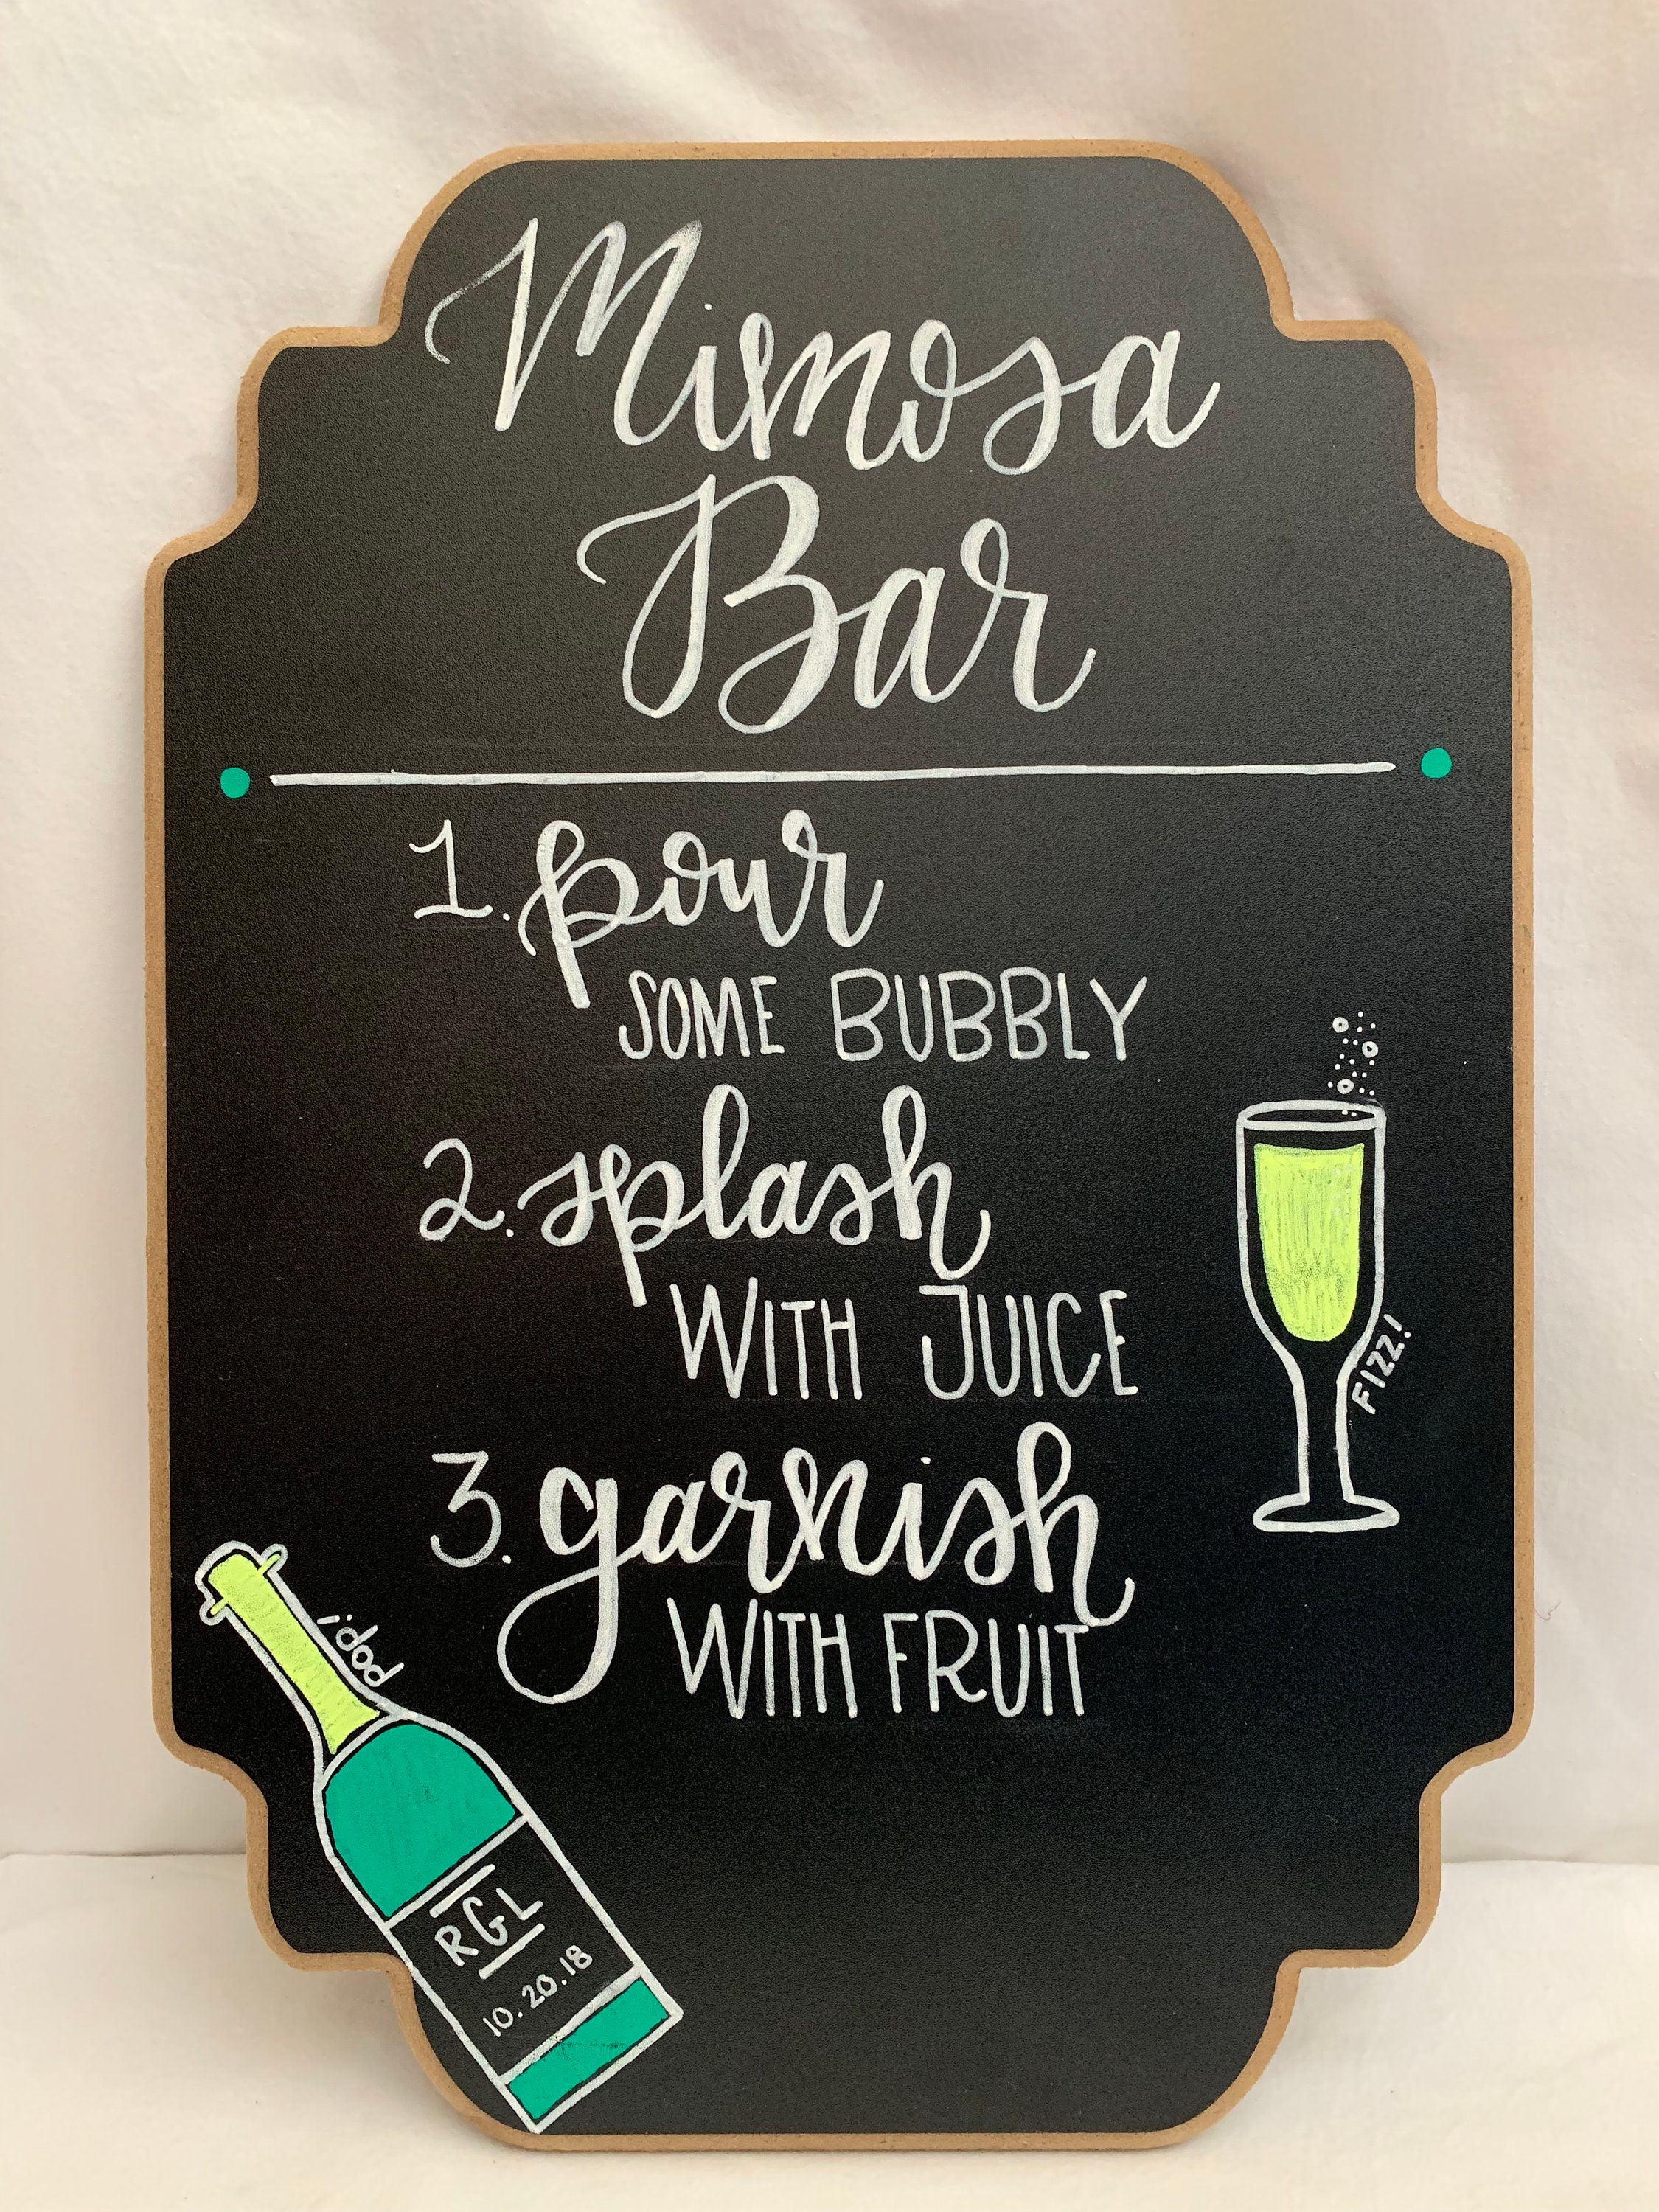 Mimosa
Bar
1. pour
SOME BUBBLY
2. splash
WITH JUICE
FIZZ!
3. garnish
WITH FRUIT
pop!
RGL
10.20.18